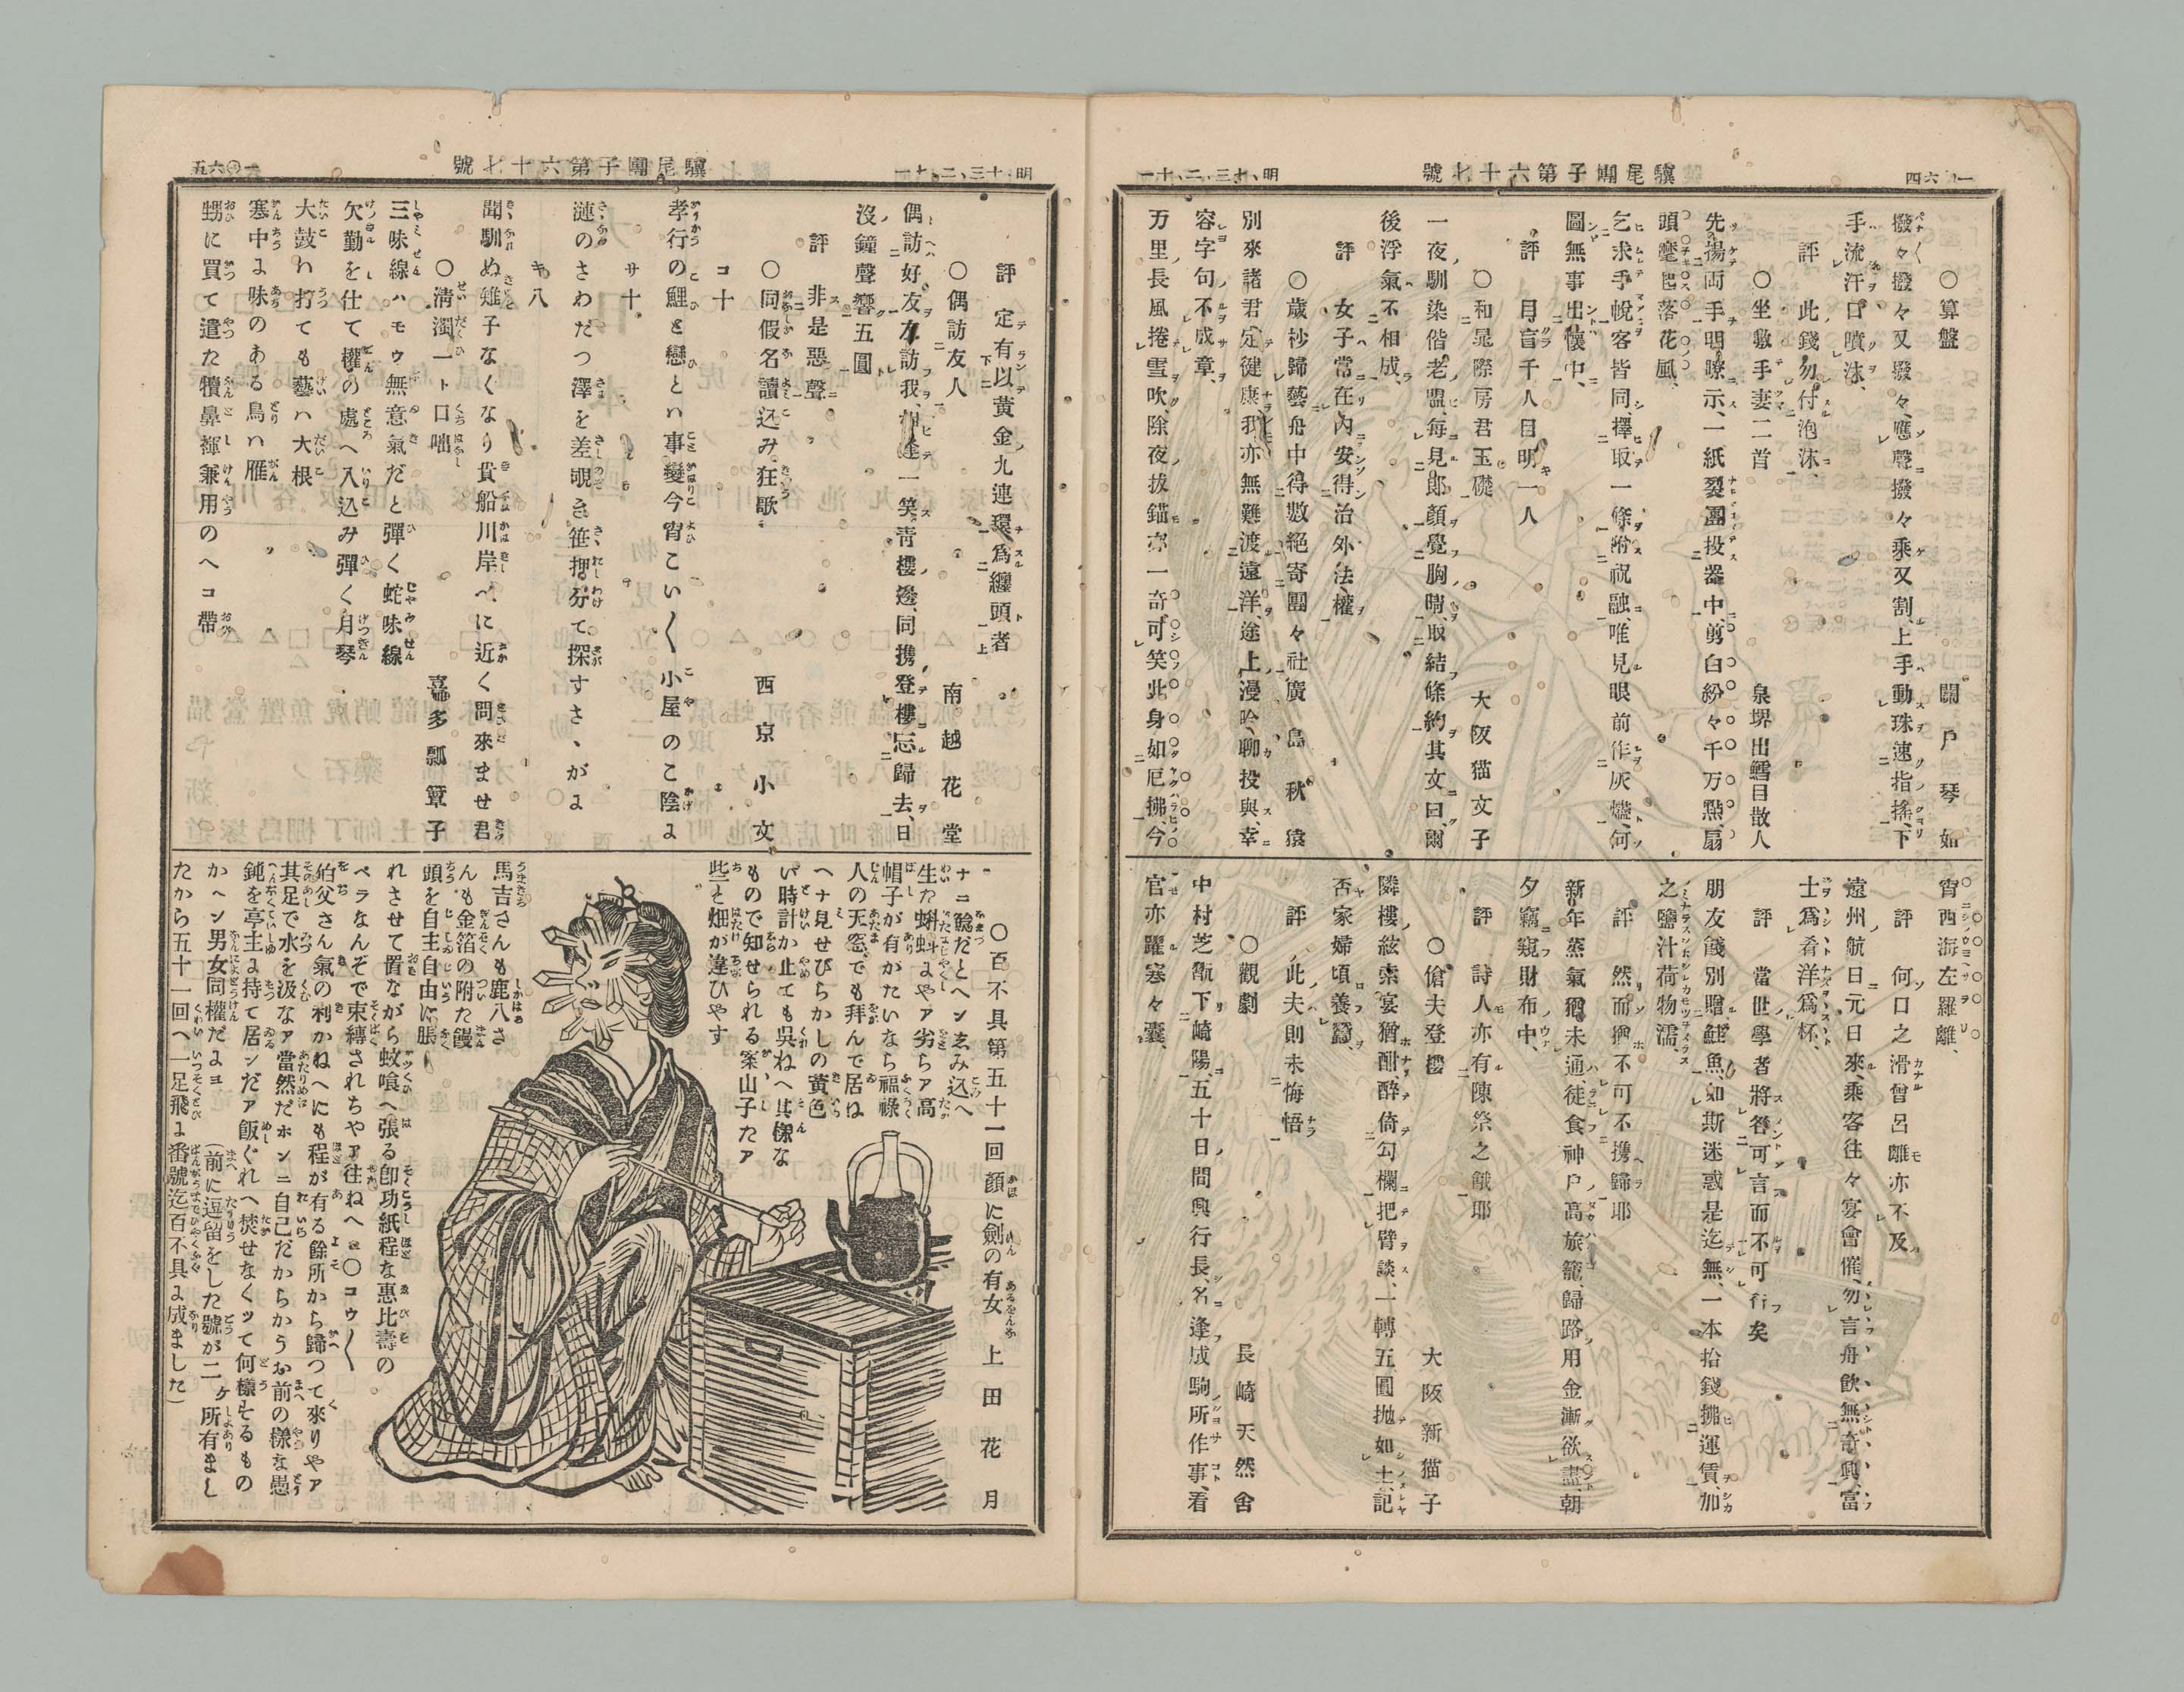 一〇六四
驥尾團子第六十七號
明、十三、二、十一
〇算盤　闘戸琴如
撥々撥々又撥々、應聲撥々乘又割、上手動珠速指搖、下
手流汗口噴沫、
評　此錢勿付泡沫、
〇坐敷手妻二首　泉堺出鱈目散人
先揚両手明瞭示、一紙裂團投器中、剪白紛々千万點、扇
頭麾出落花風、
乞求手帨客皆同、擇取一條附祝融、唯見眼前作灰燼、何
圖無事出懷中、
評　目盲千人目明一人
〇和晁際房君玉礎　大阪猫文子
一夜馴染偕老盟、毎見郎顔覺胸晴、取結條約其文曰、爾
後浮氣不相成、
評　女子常在內安得治外法權
〇歳抄歸藝舟中得數絕寄團々社　廣島　秋猿
別來諸君定健康、我亦無難渡遠洋、途上漫吟聊投與、幸
容字句不成章、
万里長風捲雪吹、除夜拔錨亦一奇、可笑此身如厄拂、今
宵西海左羅離、
評　何口之滑曾呂離亦不及
遠州航日元日來、乘客往々宴會催、勿言舟飮無奇興、富
士爲肴洋爲杯、
評　當世學者將答可言而不可行矣
朋友餞別贈鮭魚、如斯迷惑是迄無、一本拾錢拂運賃、加
之鹽汁荷物濡、
評　然而猶不可不携歸耶
新年蒸氣猶未通、徒食神戸高旅籠、歸路用金漸欲盡、朝
夕竊窺財布中、
評　詩人亦有陳祭之餓耶
〇傖夫登樓　大阪新猫子
隣樓絃索宴猶酣、醉倚勾欄把臂談、一轉五圓抛如土、記
否家婦頃養蠶、
評　此夫則未悔悟
〇觀劇　長崎天然舍
中村芝翫下崎陽、五十日間興行長、名逢成駒所作事、看
官亦躍塞々囊、
明、十三、二、十一
驥尾團子第六十七號
一〇六五
評　定有以黄金九連環爲纏頭者
〇偶訪友人　南越花堂
偶訪好友友訪我、相逢一笑靑樓邊、同携登樓忘歸去、日
沒鐘聲響五圓
評　非是惡聲
〇同假名讀込み狂歌　西京小文
コ十
孝行の鯉と戀とハ事變今宵こい〱小屋のこ陰よ
サ十
漣のさわだつ澤を差覗き笹押分て探すさゝがよ
キ八
聞馴ぬ雉子なくなり貴船川岸べに近く問來ませ君
〇淸濁一ト口咄　喜多瓢簟子
三味線ハモウ無意氣だと彈く蛇味線
欠勤を仕て權の處へ入込み彈く月琴
大鼓ハ打ても藝ハ大根
寒中よ味のある鳥ハ雁
甥に買て遣た犢鼻褌兼用のヘコ帶
〇百不具第五十一回　顔に劍の有女　上田花月
ナニ鯰だとヘンゑみ込へ
生な蝌蚪よやア劣らア高
帽子が有がたいなら福祿
人の天窓でも拜んで居ね
ヘナ見せびらかしの黄色
い時計か止ても呉ねへ其樣な
もので知せられる案山子たア
些と畑が違ひやす
馬吉さんも鹿八さ
んも金箔の附た饅
頭を自主自由に脹
れさせて置ながら蚊喰へ張る卽功紙程な惠比壽の
ペラなんぞで束縛されちやア往ねへヨ〇コウ〱
伯父さん氣の利かねへにも程が有る餘所から歸つて來りやア
其足で水を汲なア當然だホンニ自己だからかうお前の樣な愚
鈍を亭主よ持て居ンだア飯ぐれへ焚せなくッて何樣モるもの
かヘン男女同權だよヨ（前に逗留をした號が二ヶ所有まし
たから五十一回へ一足飛よ番號迄百不具よ成ました）